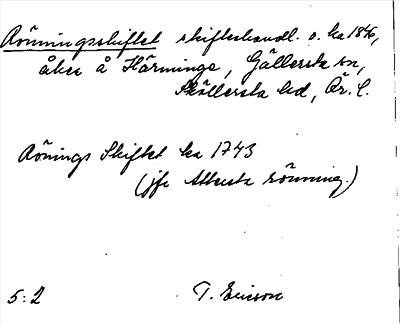 Rönningsskiftet skifteshandl. o. ka 1846,
åker å Härminge, Gällersta sn,
Sköllersta hd, Ör. l.
Rönings Skiftet ka 1743
(jfr Attersta rönning.)
5:2 T. Ericson